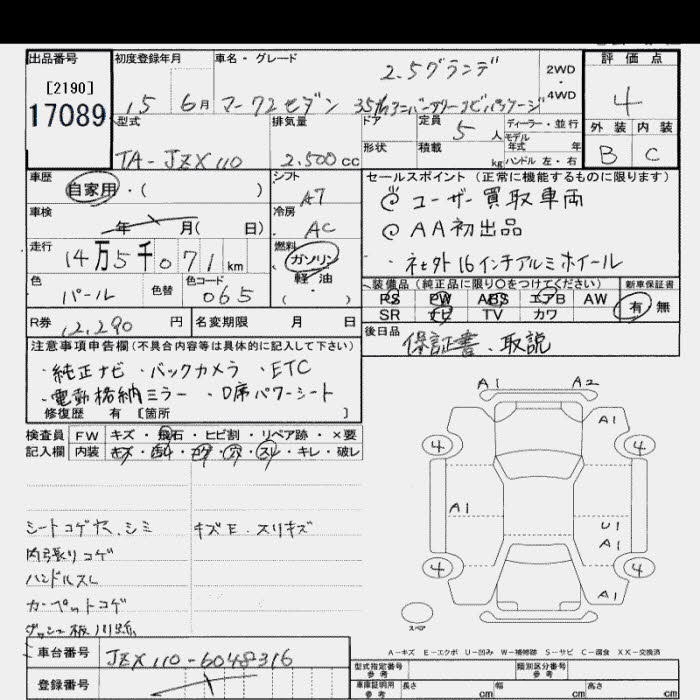 出品番号 初度登録年月 車名・グレード 評価点
[2190]
17089
15 6月 マークⅡセダン 2.5グランデ 35thアニバーサリーナビパッケージ 2WD・4WD 4
型式 排気量 ドア 定員 5人 ディーラー・並行 外装 内装
モデル年式 年
TA-JZX110 2.500cc 形状 積載 kg ハンドル 左・右 B C
車歴 自家用・( ) シフト AT
セールスポイント (正常に機能するものに限ります)
◎ユーザー買取車両
◎AA初出品
・社外16インチアルミホイール
車検 年 月( 日) 冷房 AC
走行 14万5千071km
燃料 ガソリン 軽油・( )
色 パール 色替 色コード 065
装備品(純正品に限り○をつけてください) 新車保証書
PS PW ABS エアB AW 有 無
SR ナビ TV カワ
R券 12,290円 名変期限 月 日
後日品 保証書、取説
注意事項申告欄(不具合内容等は具体的に記入して下さい)
・純正ナビ・バックカメラ・ETC
・電動格納ミラー・D席パワーシート
修復歴 有 [箇所 ]
検査員 FW キズ・飛石・ヒビ割・リペア跡・×要
記入欄 内装 キズ・コゲ・穴・スレ・キレ・破レ
シートコゲ穴、シミ キズE・スリキズ
内張りコゲ
ハンドルスレ
カーペットコゲ
ダッシュ板
A1 A2
A1
4 4
A1
U1
A1
4 4
A1
スペア
A-キズ E-エクボ U-凹み W-補修跡 S-サビ C-腐食 XX-交換済
車台番号 JZX110-6048316
型式指定番号 参考 類別区分番号 参考
登録番号
車庫証明用 参考 長さ cm 幅 cm 高さ cm